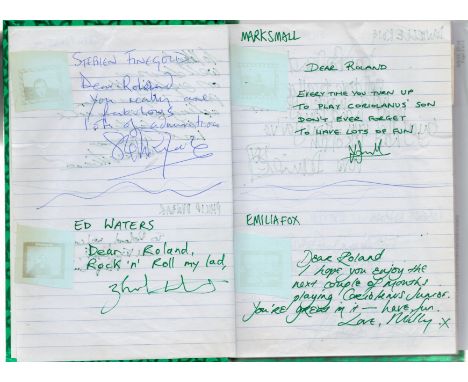 STEPHEN FINEGOLD
Dear Roland
You really are
fabulous
lots of admiration
ED WATERS
Dear Roland,
Rock 'n' Roll my lad,
MARK SMALL
DEAR ROLAND
EVERY TIME YOU TURN UP
TO PLAY CORIOLANUS' SON
DON'T EVER FORGET
TO HAVE LOTS OF FUN.
EMILIA FOX
Dear Roland
I hope you enjoy the
next couple of months
playing Coriolanus Junior.
You're great in it – have fun.
Love, Milly x